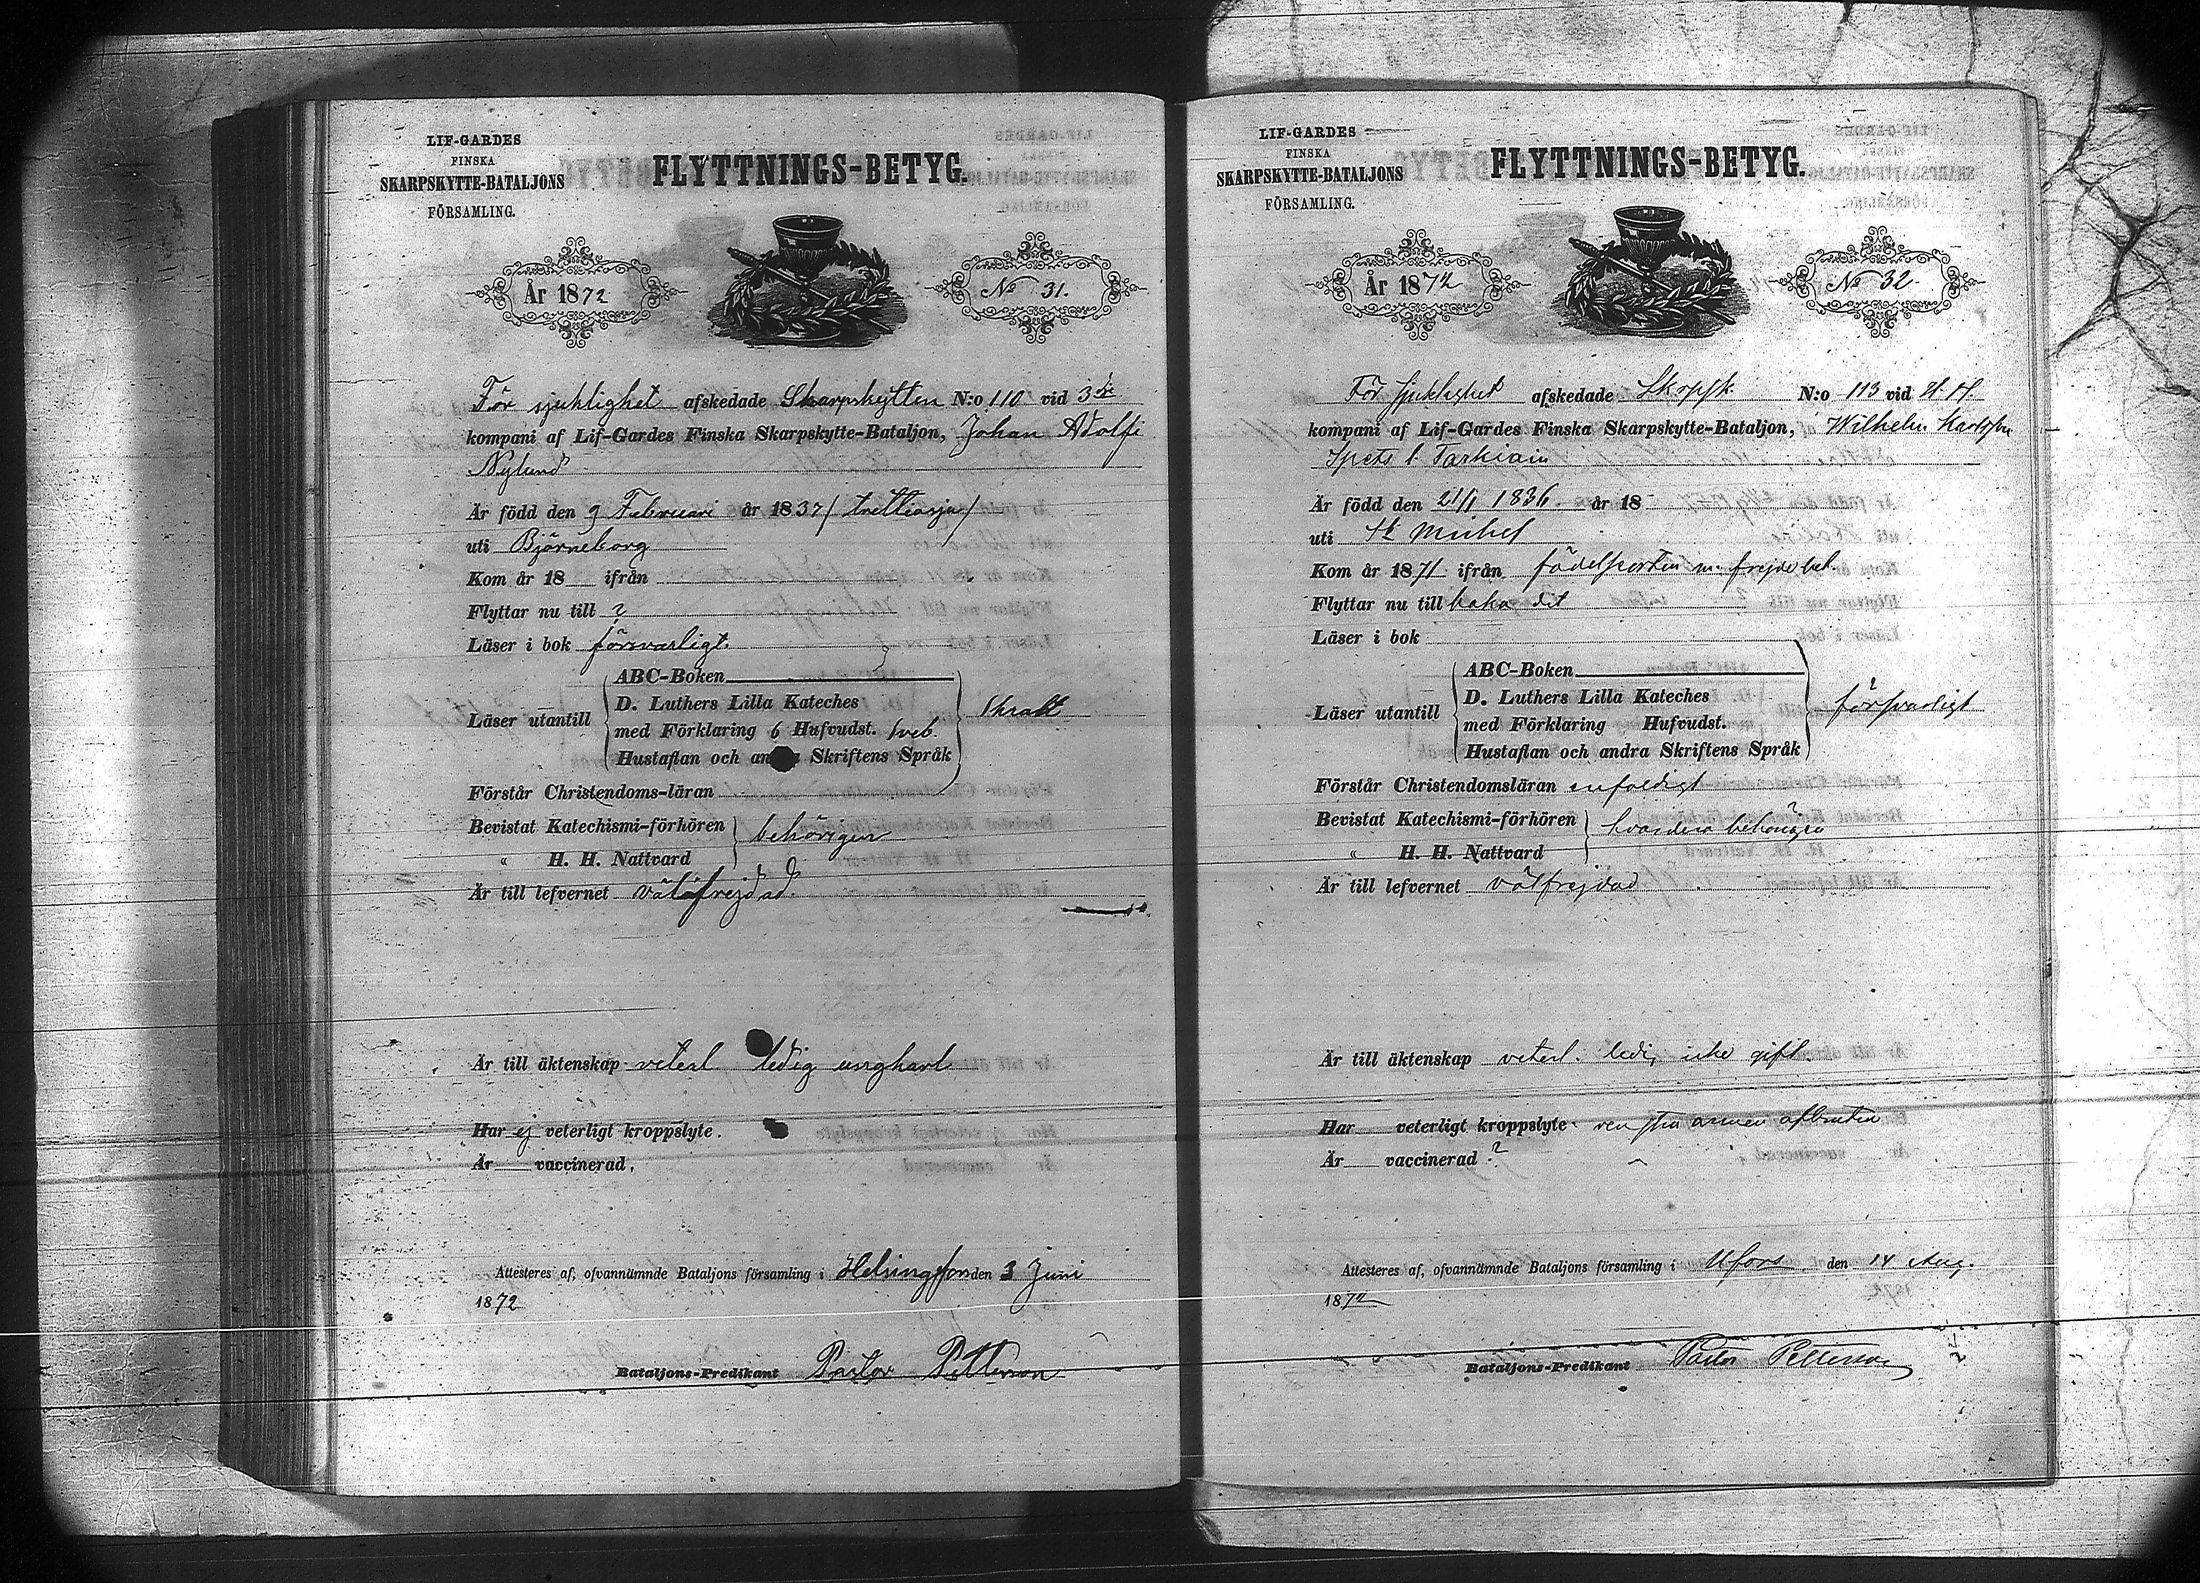 LIF-GARDES
FINSKA
SKARPSKYTTE-BATALJONS
FÖRSAMLING.
FLYTTNINGS-BETYG.
År 1872
No 31.
För sjuklighet afskedade Skarpskytten N:o 110 vid 3dje
kompani af Lif-Gardes Finska Skarpskytte-Bataljon, Johan Adolf
Nylund
Är född den 9 Februari år 1837 / trettiosju /
uti Björneborg
Kom år 18 ifrån
Flyttar nu till ?
Läser i bok försvarligt.
ABC-Boken
Läser utantill
D. Luthers Lilla Kateches
med Förklaring 6 Hufvudst.
Hustaflan och andra Skriftens Språk
Förstår Christendoms-läran
Bevistat Katechismi-förhören
behörigen
" H. H. Nattvard
Är till lefvernet välfrejdad.
Är till äktenskap veterl. ledig ungkarl
Har ej veterligt kroppslyte.
Är vaccinerad.
Attesteres af, ofvannämnde Bataljons församling i Helsingfors den 3 Juni
1872
Bataljons-Predikant Pastor Petterson
LIF-GARDES
FINSKA
SKARPSKYTTE-BATALJONS
FÖRSAMLING.
FLYTTNINGS-BETYG.
År 1872
No 32.
För sjuklighet afskedade Skarpsk. N:o 113 vid
kompani af Lif-Gardes Finska Skarpskytte-Bataljon, Wilhelm Karlsson
Spets l. Tarkiain
Är född den 21/1 1836. år 18
uti St Michel
Kom år 1871 ifrån födelseorten m. frejdebet.
Flyttar nu till baka dit
Läser i bok
ABC-Boken
Läser utantill
D. Luthers Lilla Kateches
med Förklaring Hufvudst.
Hustaflan och andra Skriftens Språk
försvarligt
Förstår Christendomsläran enfaldigt
Bevistat Katechismi-förhören
" H. H. Nattvard
Är till lefvernet välfrejdad
Är till äktenskap veterl. ledig icke gift
Har veterligt kroppslyte. venstra armen afbruten
Är vaccinerad ?
Attesteres af, ofvannämnde Bataljons församling i Hfors den 14 Aug.
1872
Bataljons-Predikant Pastor Petterson